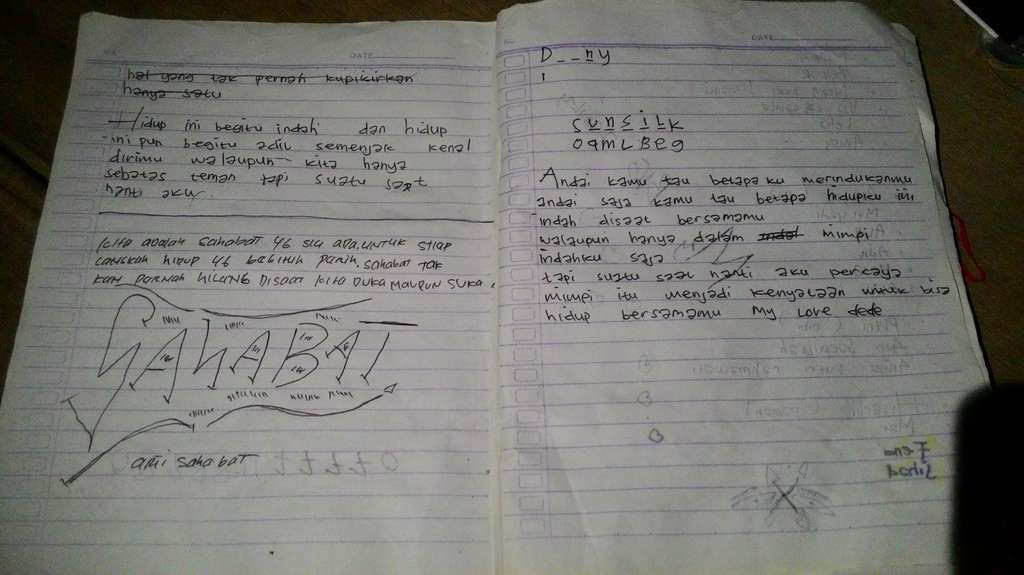 DATE
hal yang tak pernah kupikirkan
hanya satu
Hidup ini begitu indah dan hidup
ini pun begitu adil semenjak kenal
dirimu walaupun kita hanya
sebatas teman tapi suatu saat
nanti aku
kita adalah sahabat yg slu ada untuk stiap
langkah hidup yg
kan pernah hilang disaat kita duka maupun suka.
SAHABAT
arti sahabat
DATE
D__ny
1
SUNSILK
Andai kamu tau betapa ku merindukanmu
andai saja kamu tau betapa hidupku ini
indah disaat bersamamu
walaupun hanya dalam indal mimpi
indahku saja
tapi suatu saat nanti aku percaya
mimpi itu menjadi kenyataan untuk bisa
hidup bersamamu My Love dede